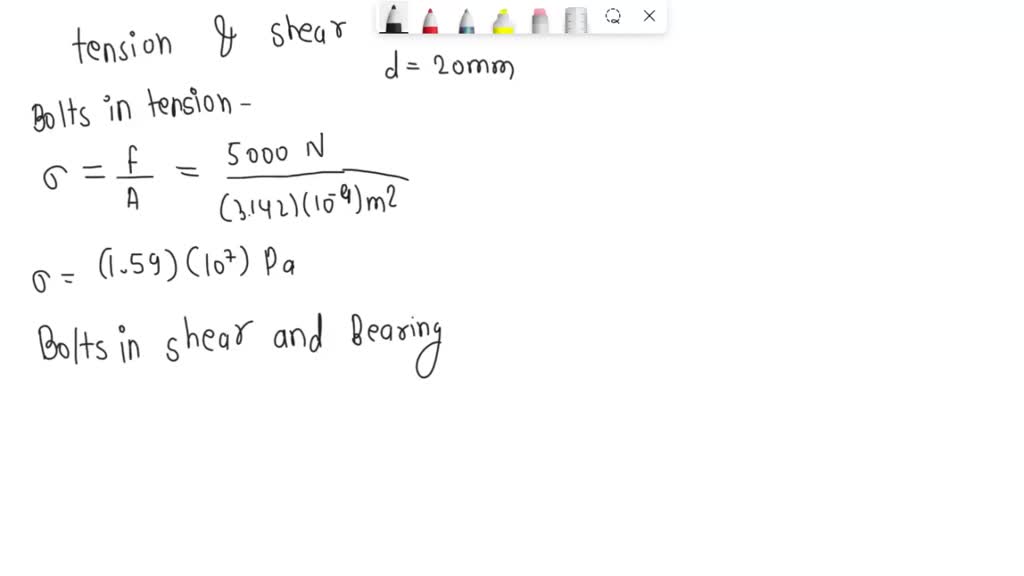 tension & shear
d = 20mm
Bolts in tension -
σ = f/A = 5000 N / (3.142)(10⁻⁴)m²
σ = (1.59)(10⁷) Pa
Bolts in shear and Bearing